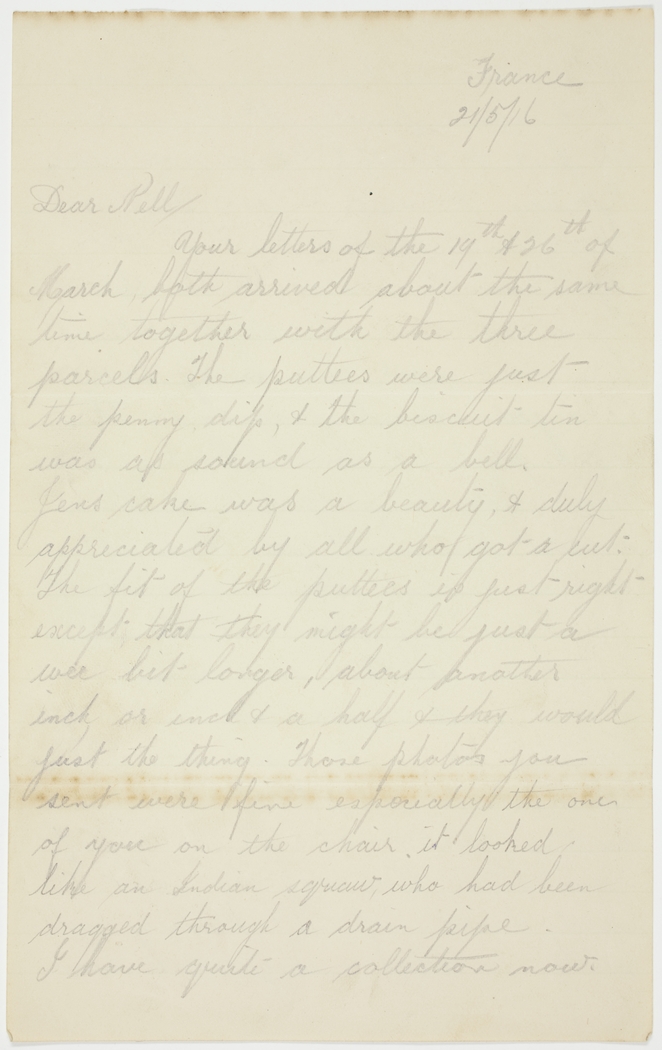 France
21/5/16
Dear Nell
Your letters of the 19th & 26th of
March, both arrived about the same
time together with the three
parcels. The puttees were just
the penny dip, & the biscuit tin
was as sound as a bell.
Jens cake was a beauty, & duly
appreciated by all who got a cut.
The fit of the puttees is just right
except that they might be just a
wee bit longer, about another
inch or inch & a half & they would
just the thing. Those photos you
sent were fine especially the one
of you on the chair, it looked
like an Indian squaw, who had been
dragged through a drain pipe.
I have quite a collection now.